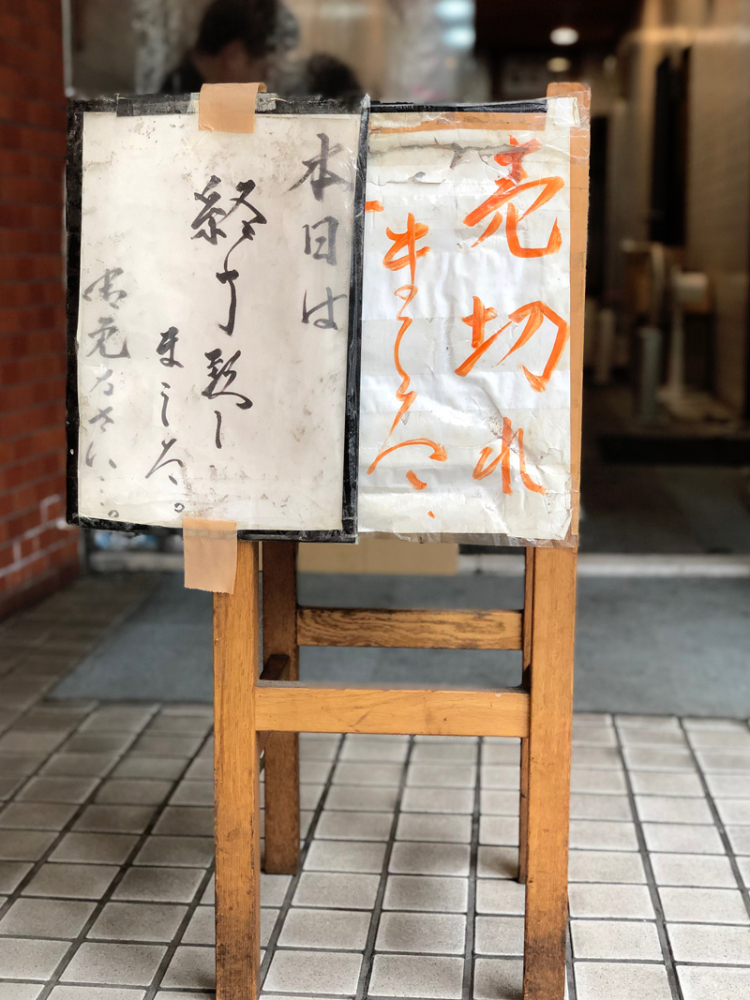 売切れ
ました。
本日は
終了致し
ました。
御免なさい…。